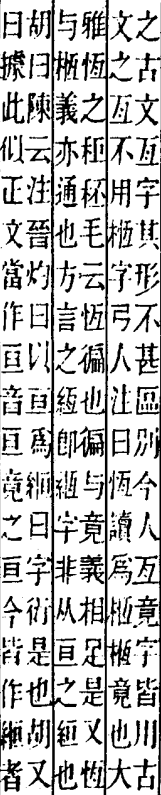 之古文亙字其形不甚區別今人亙竟字皆用古
文之亙不用㮓字弓人注曰恆讀爲㮓㮓竟也大
雅恆之秬秠毛云恆徧也徧与竟義相足是又恆
与㮓義亦通也方言之絚卽絚字非从亘之絙也
胡曰陳云注晉灼曰以亘爲絙曰字衍是也胡又
曰據此似正文當作亘音亘竟之亘今皆作絙者